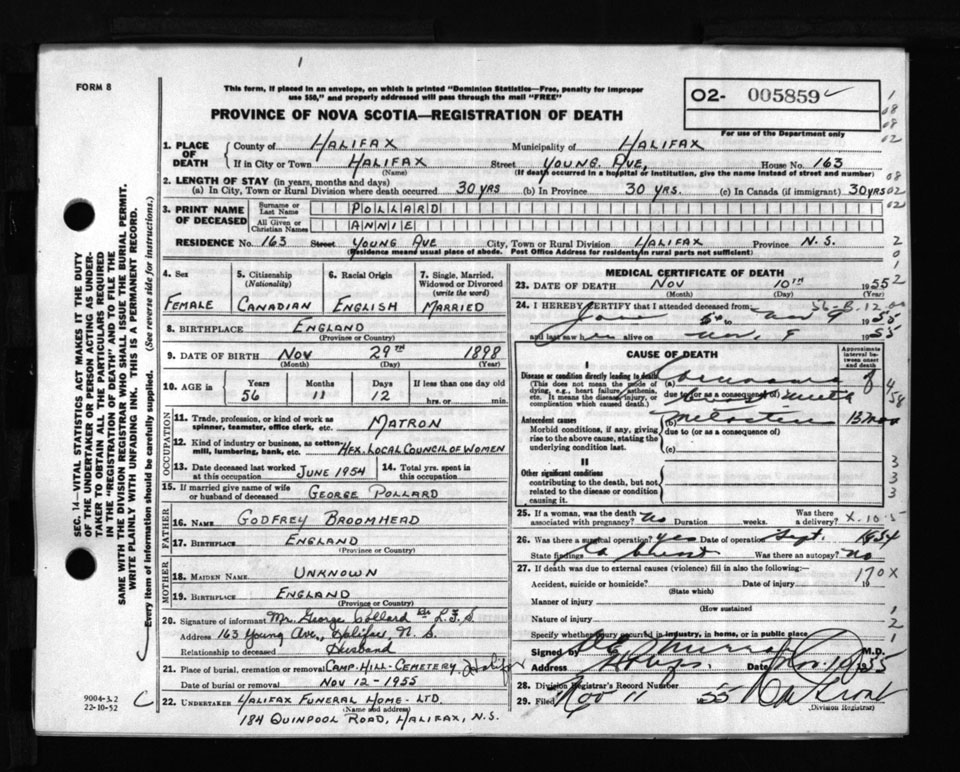 FORM 8
This form, if placed in an envelope, on which is printed "Dominion Statistics—Free, penalty for improper
use $50," and properly addressed will pass through the mail "FREE"
PROVINCE OF NOVA SCOTIA—REGISTRATION OF DEATH
O2- 005859
For use of the Department only
1. PLACE OF DEATH County of HALIFAX Municipality of HALIFAX
If in City or Town HALIFAX (Name) Street YOUNG AVE, House No. 163
(If death occurred in a hospital or institution, give the name instead of street and number)
2. LENGTH OF STAY (in years, months and days)
(a) In City, Town or Rural Division where death occurred 30 YRS (b) In Province 30 YRS. (c) In Canada (if immigrant) 30 YRS
3. PRINT NAME OF DECEASED Surname or Last Name POLLARD
All Given or Christian Names ANNIE
RESIDENCE No. 163 Street YOUNG AVE City, Town or Rural Division HALIFAX Province N.S.
(Residence means usual place of abode. Post Office Address for residents in rural parts not sufficient)
4. Sex FEMALE
5. Citizenship (Nationality) CANADIAN
6. Racial Origin ENGLISH
7. Single, Married, Widowed or Divorced (write the word) MARRIED
8. BIRTHPLACE ENGLAND
(Province or Country)
9. DATE OF BIRTH NOV 29TH 1898
(Month) (Day) (Year)
10. AGE in Years 56 Months 11 Days 12 If less than one day old hrs. or min.
OCCUPATION
11. Trade, profession, or kind of work as spinner, teamster, office clerk, etc. MATRON
12. Kind of industry or business, as cotten-mill, lumbering, bank, etc. HFX. LOCAL COUNCIL OF WOMEN
13. Date deceased last worked at this occupation JUNE 1954 14. Total yrs. spent in this occupation
15. If married give name of wife or husband of deceased GEORGE POLLARD
FATHER
16. NAME GODFREY BROOMHEAD
17. BIRTHPLACE ENGLAND
(Province or Country)
MOTHER
18. MAIDEN NAME UNKNOWN
19. BIRTHPLACE ENGLAND
(Province or Country)
20. Signature of informant Mr. George Pollard
Address 163 Young Ave., Halifax, N.S.
Relationship to deceased Husband
21. Place of burial, cremation or removal CAMP-HILL-CEMETERY, Halifax
Date of burial or removal NOV 12-1955
22. UNDERTAKER HALIFAX FUNERAL HOME-LTD.
(Name and address)
184 QUINPOOL ROAD, HALIFAX, N.S.
MEDICAL CERTIFICATE OF DEATH
23. DATE OF DEATH NOV 10TH 1955
(Month) (Day) (Year)
24. I HEREBY CERTIFY that I attended deceased from
to Nov 9 1955
and last saw her alive on Nov. 9 1955
CAUSE OF DEATH
Approximate interval between onset and death
I
Disease or condition directly leading to death
(This does not mean the mode of dying, e.g., heart failure, asthenia, etc. It means the disease, injury, or complication which caused death.)
(a) of
due to (or as a consequence of)
Antecedent causes
Morbid conditions, if any, giving rise to the above cause, stating the underlying condition last.
(b)
due to (or as a consequence of)
(c)
II
Other significant conditions
contributing to the death, but not related to the disease or condition causing it.
25. If a woman, was the death associated with pregnancy? No Duration weeks. Was there a delivery?
26. Was there a surgical operation? yes Date of operation Sept. 1954
State findings Was there an autopsy? no
27. If death was due to external causes (violence) fill in also the following:—
170X
Accident, suicide or homicide? Date of injury 19
(State which)
Manner of injury
(How sustained
Nature of injury
Specify whether injury occurred in industry, in home, or in public place
Signed by M.D.
Address Date Nov. 10 1955
28. Division Registrar's Record Number
29. Filed Nov 11 55
(Division Registrar)
9004-3.2
22-10-52
SEC. 14—VITAL STATISTICS ACT MAKES IT THE DUTY
OF THE UNDERTAKER OR PERSON ACTING AS UNDER-
TAKER TO OBTAIN ALL THE PARTICULARS REQUIRED
IN THE "REGISTRATION OF DEATH" AND TO FILE THE
SAME WITH THE DIVISION REGISTRAR WHO SHALL ISSUE THE BURIAL PERMIT.
WRITE PLAINLY WITH UNFADING INK. THIS IS A PERMANENT RECORD.
Every item of information should be carefully supplied. (See reverse side for instructions.)